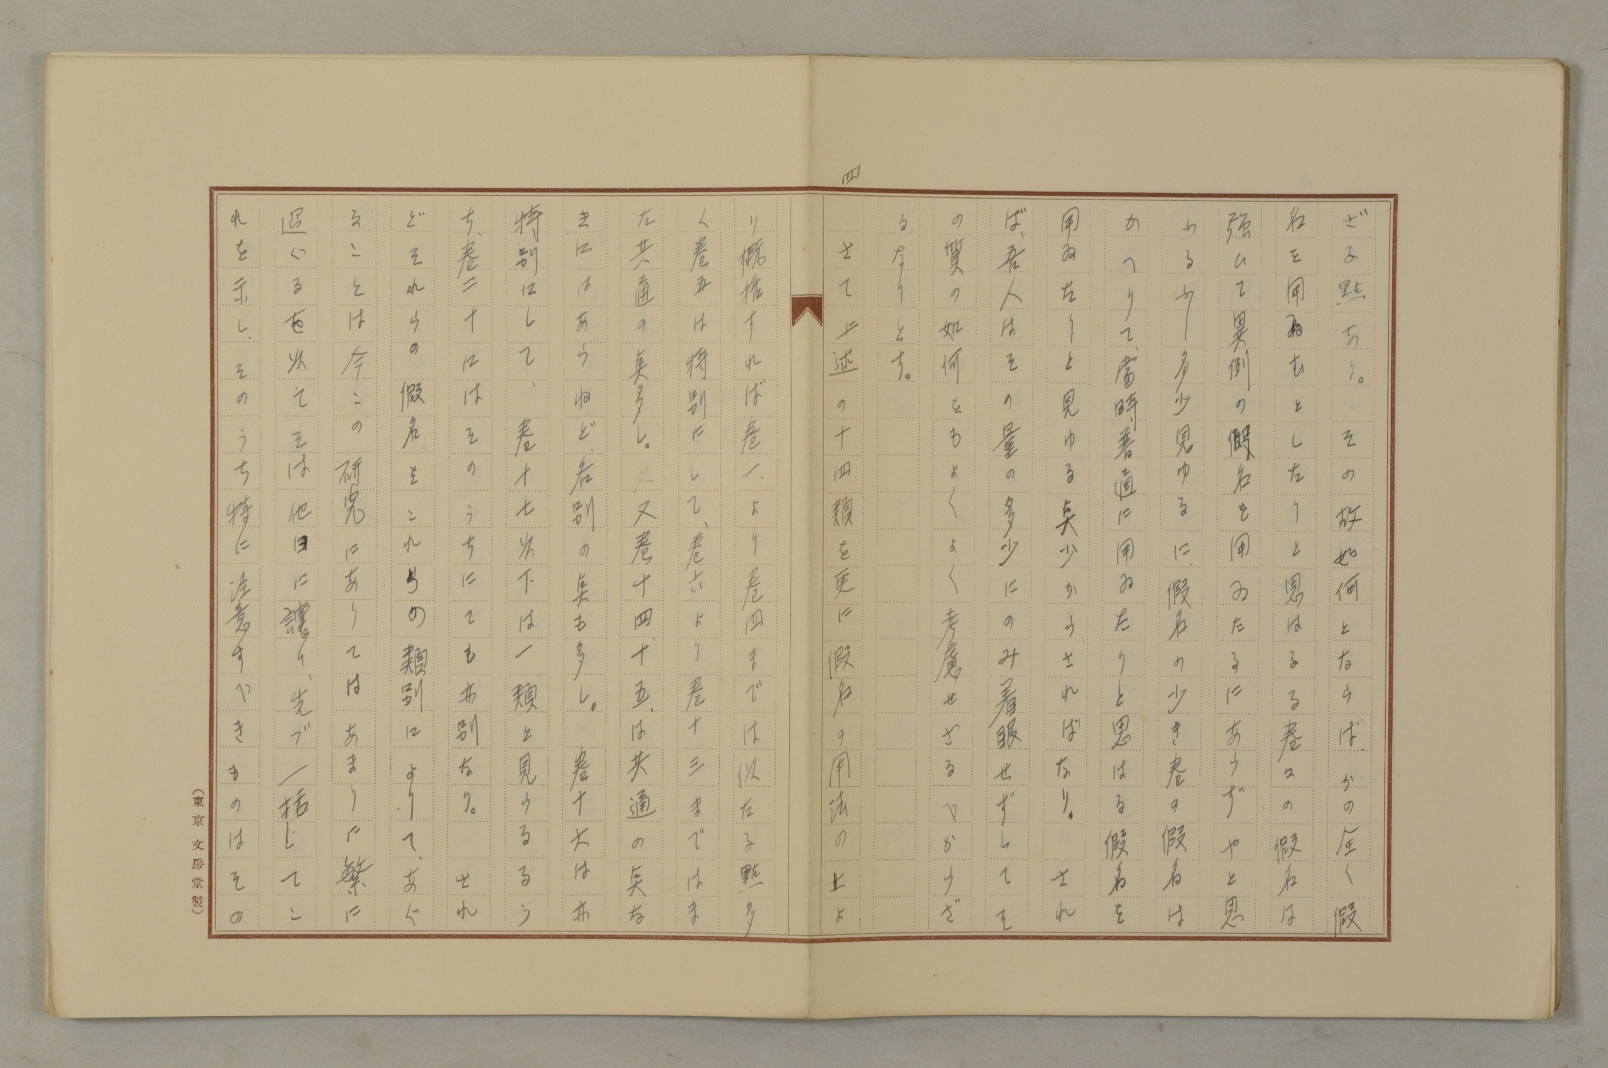 ざる點あり。その故如何とならば、かの全く假
名を用ゐむとしたりと思はるる巻々の假名は
強ひて異例の假名を用ゐたるにあらずやと思
はるゝ多少見ゆるに、假名の少き巻の假名は
かへりて、當時、普通に用ゐたりと思はる假名を
用ゐたりと見ゆる点少からさればなり。され
ば、吾人はその量の多少にのみ着眼せずしてそ
の質の如何をもよくよく考慮せざるべからざ
るなりとす。
四
さて上述の十四類を更に假名の用法の上よ
り概括すれば巻一、より巻四までは似たる點多
く巻五は特別にして、巻六より巻十三まではま
た共通の点多し。又巻十四、十五、は共通の点な
きにはあらねど、各別の点も多し。巻十六は亦
特別にして、巻十七以下は一類と見らるるう
ち、巻二十にはそのうちにても亦別なり。され
どそれらの假名をこれらの類別によりて、あぐ
ることは今この研究にありてはあまりに繁に
過ぐるを以てそは他日に讓り、先づ一括してこ
れを示し、そのうち特に注意すべきものはその
(東京 文房堂製)